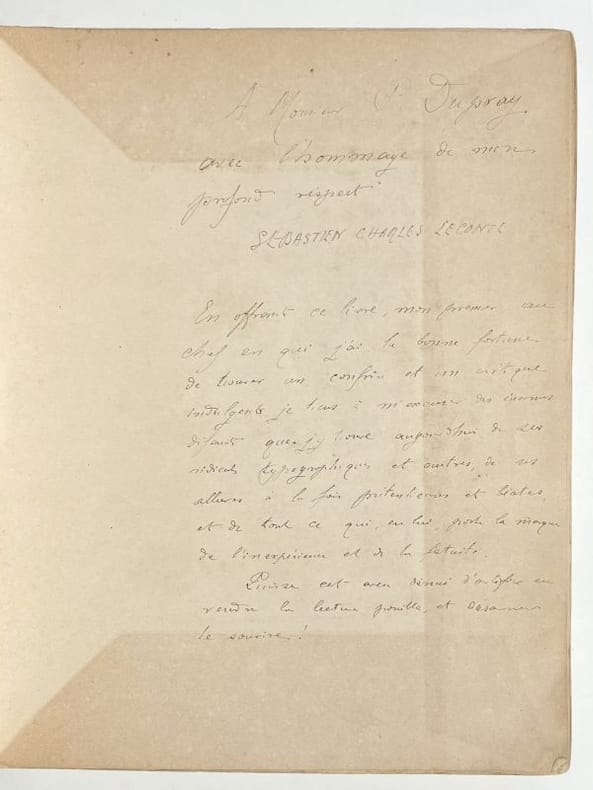 A Monsieur P. Dupray
avec l'hommage de mon
profond respect
SÉBASTIEN CHARLES LECONTE
En offrant ce livre, mon premier au
chef en qui j'ai la bonne fortune
de trouver un confrère et un critique
indulgents, je tiens à m'excuser des énormes
défauts que j'y trouve aujourd'hui de ses
ridicules typographiques et autres, de ses
allures à la fois prétentieuses et béates,
et de tout ce qui, en lui, porte la marque
de l'inexpérience et de la fatuité.
Puisse cet aveu dénué d'artifice en
rendre la lecture possible, et désarmer
le sourire !